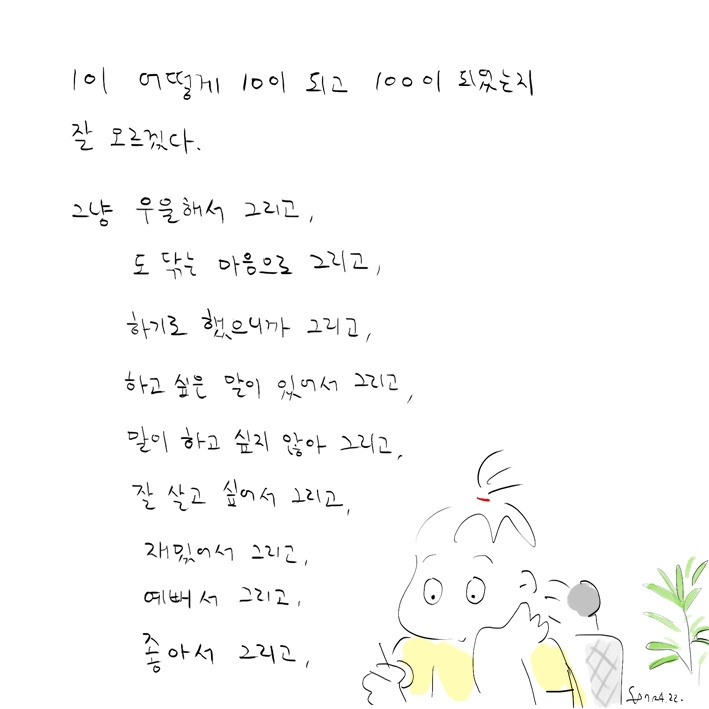 1이 어떻게 10이 되고 100이 되었는지
잘 모르겠다.
그냥 우울해서 그리고,
도 닦는 마음으로 그리고,
하기로 했으니까 그리고,
하고 싶은 말이 있어서 그리고,
말이 하고 싶지 않아 그리고,
잘 살고 싶어서 그리고,
재밌어서 그리고,
예뻐서 그리고,
좋아서 그리고,